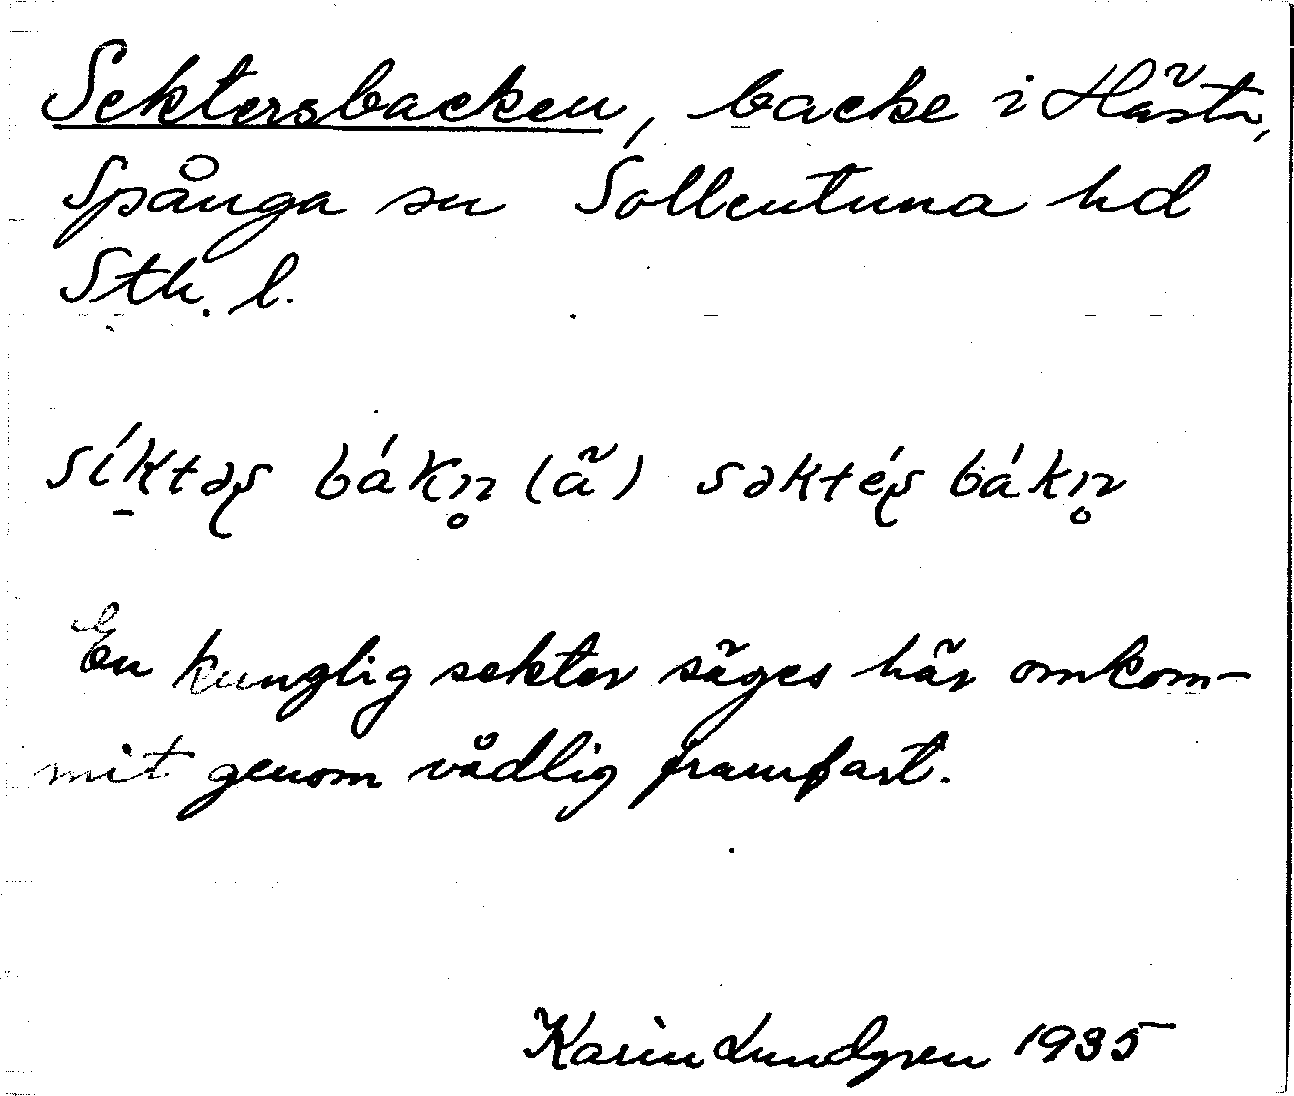 Sektersbacken, backe i Hästa,
Spånga sn Sollentuna hd
Sth. l.
síktəʂ bákn̥ (ä) səktéʂ bákn̥
En kunglig sekter säges här omkom-
mit genom vådlig framfart.
Karin Lundgren 1935